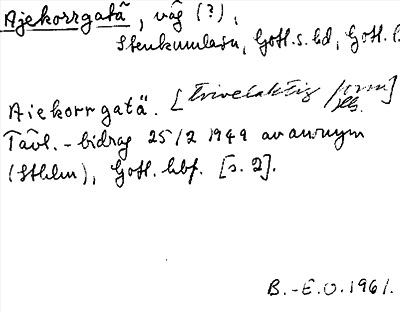 Ajekorrgatä, väg (?),
Stenkumla sn, Gotl. s. hd, Gotl. l.
Aiekorrgatä. [Tvivelaktig form]
Tävl.-bidrag 25/2 1949 av anonym
(Sthlm), Gotl. hbf. [s. 2].
B.-E.O. 1961.